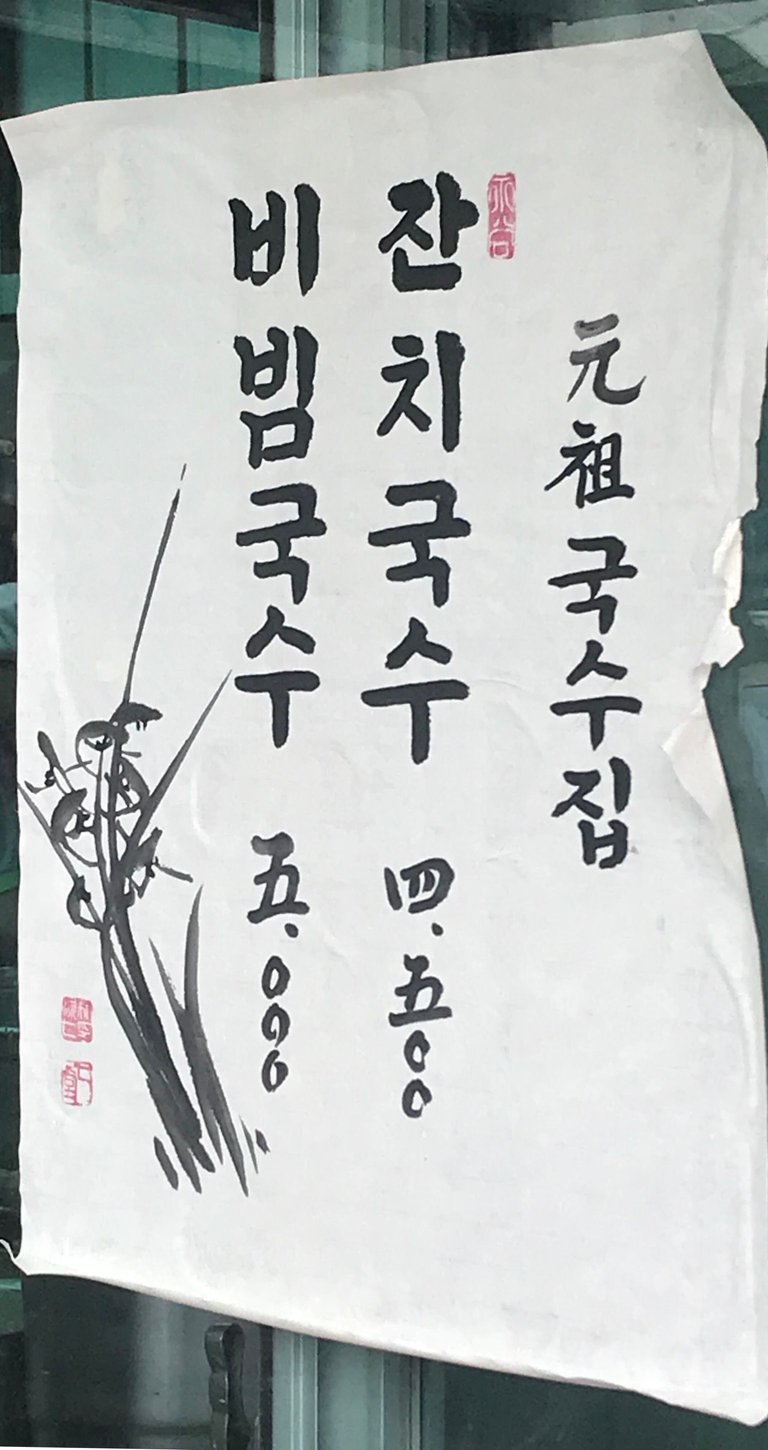 元祖국수집
잔치국수 四.五00
비빔국수 五.000